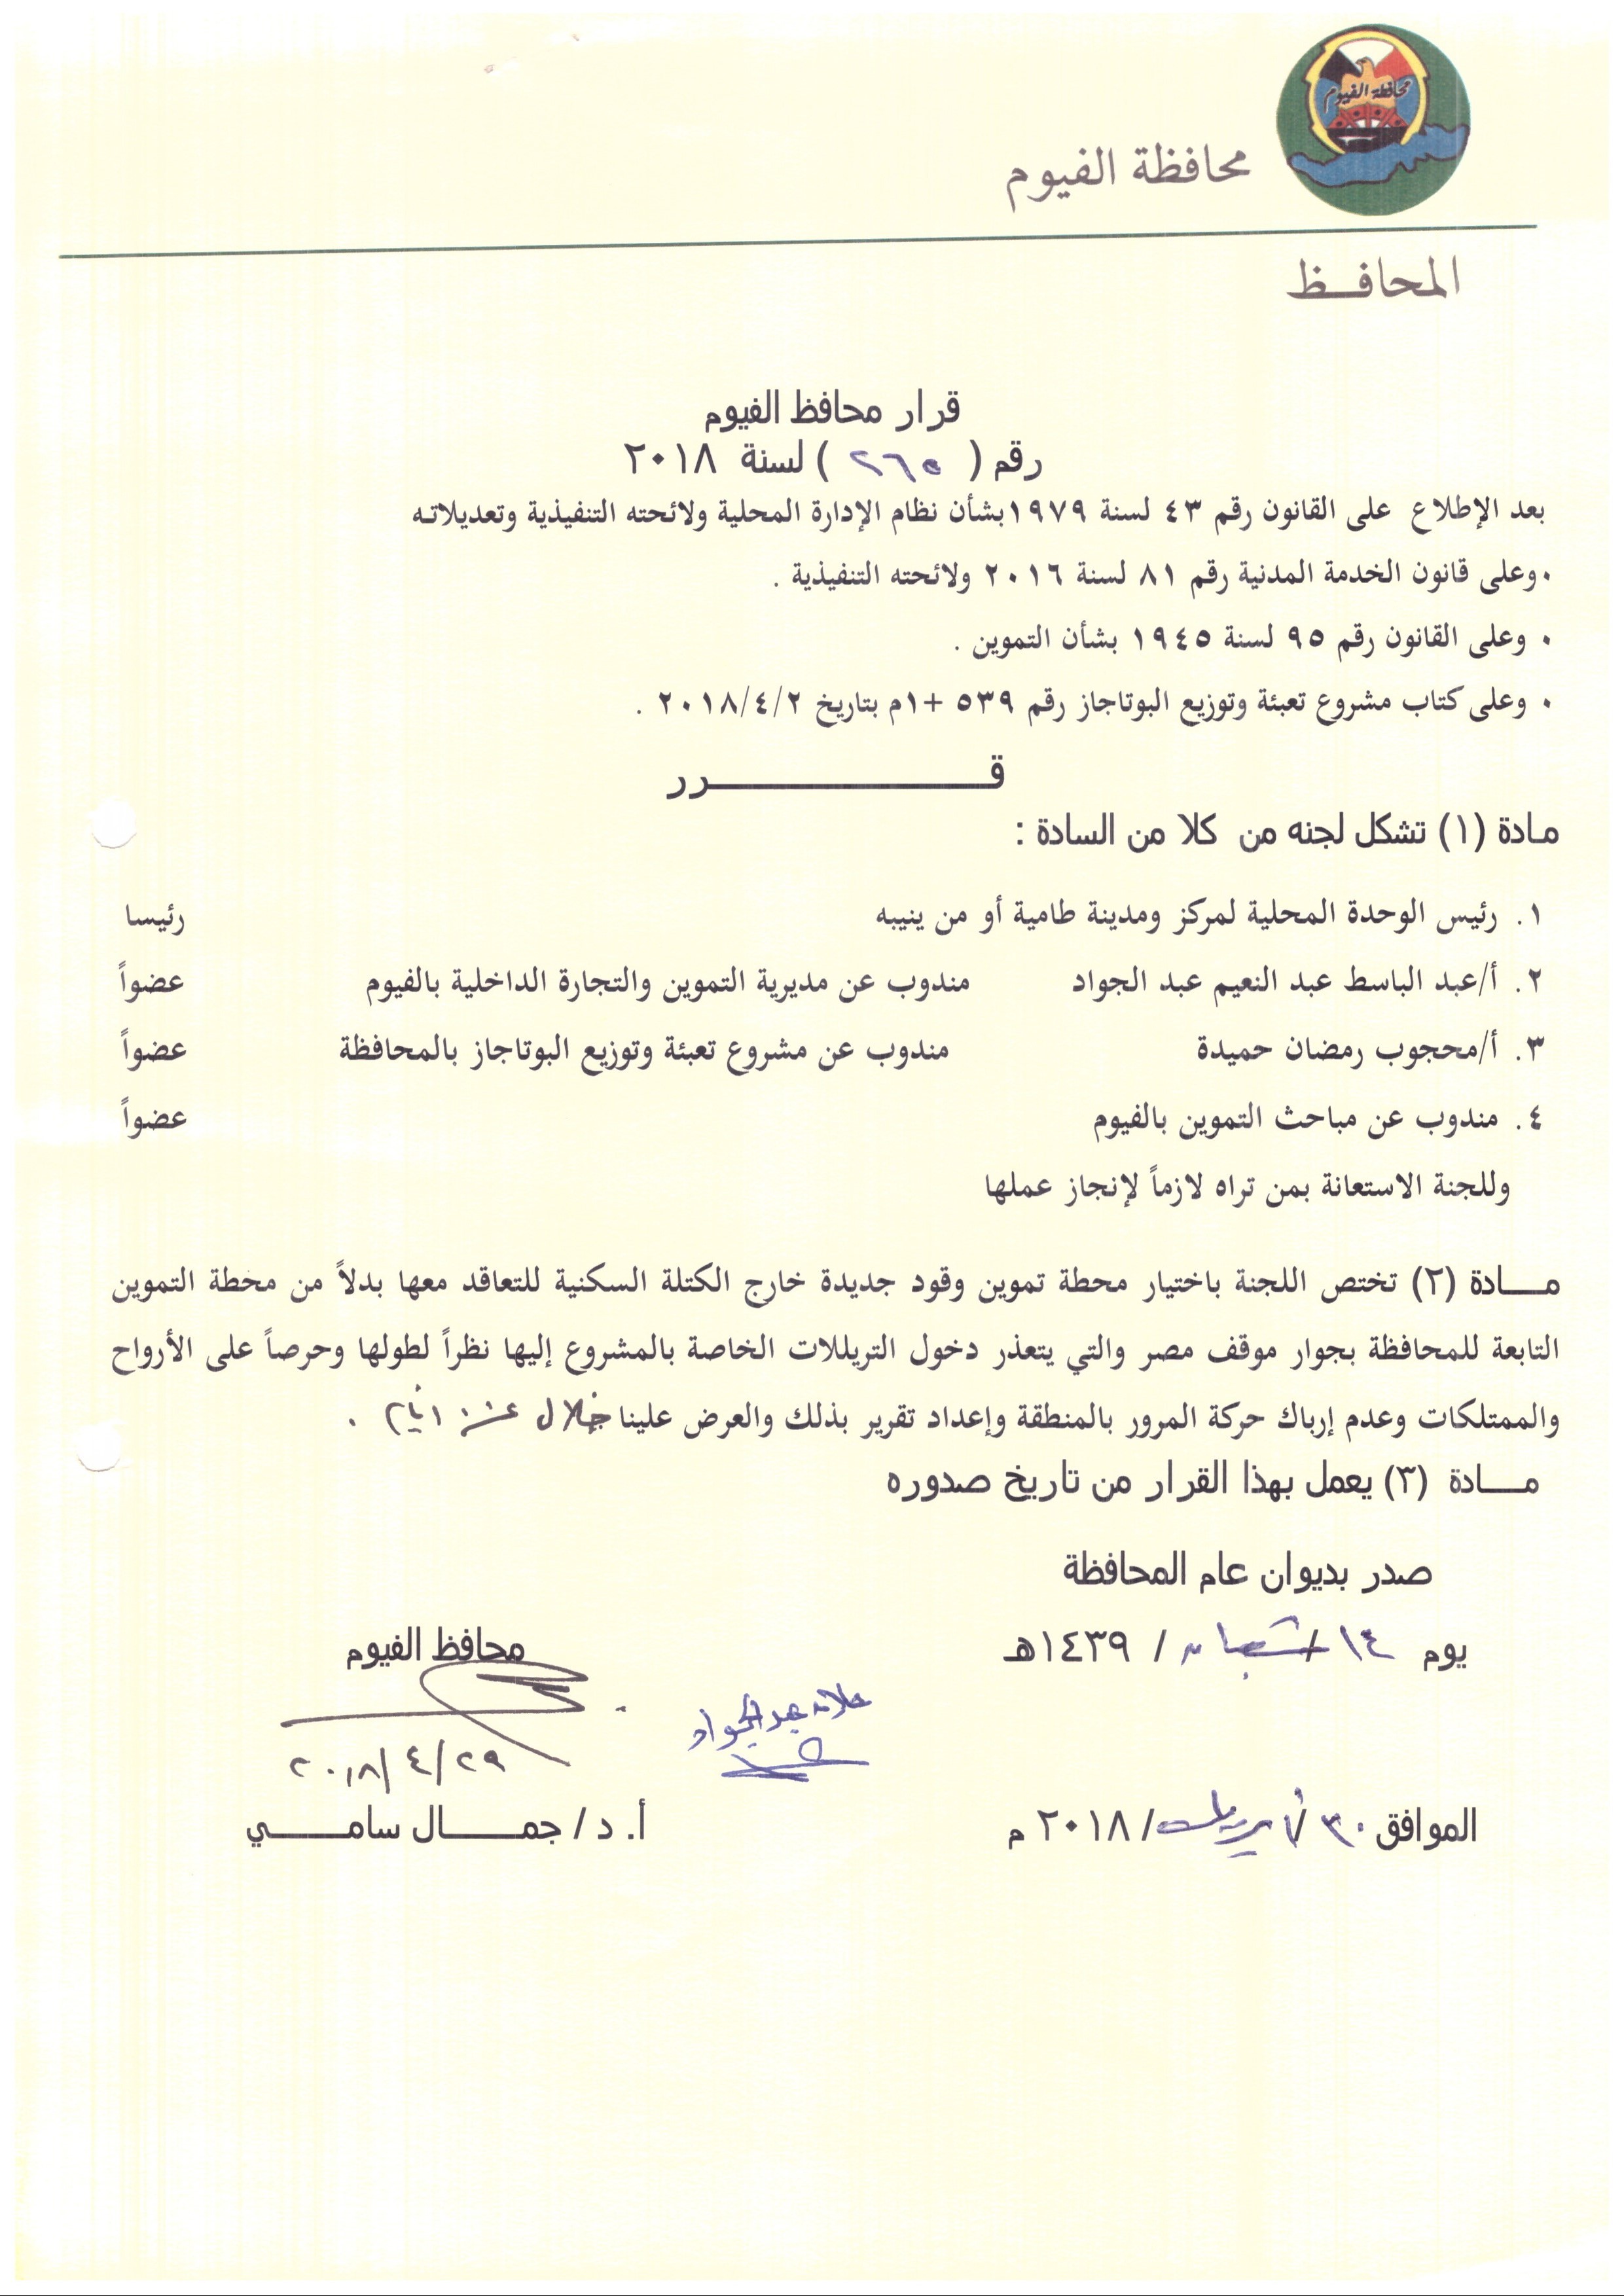 محافظة الفيوم
محافظة الفيوم
المحافــظ
قرار محافظ الفيوم
رقم ( ٢٦٥ ) لسنة ٢٠١٨
بعد الإطلاع على القانون رقم ٤٣ لسنة ١٩٧٩بشأن نظام الإدارة المحلية ولائحته التنفيذية وتعديلاته
• وعلى قانون الخدمة المدنية رقم ٨١ لسنة ٢٠١٦ ولائحته التنفيذية .
• وعلى القانون رقم ٩٥ لسنة ١٩٤٥ بشأن التموين .
• وعلى كتاب مشروع تعبئة وتوزيع البوتاجاز رقم ٥٣٩ +١م بتاريخ ٢٠١٨/٤/٢ .
قــــــــــــــرر
مادة (١) تشكل لجنه من كلا من السادة :
١. رئيس الوحدة المحلية لمركز ومدينة طامية أو من ينيبه رئيسا
٢. أ/عبد الباسط عبد النعيم عبد الجواد مندوب عن مديرية التموين والتجارة الداخلية بالفيوم عضواً
٣. أ/محجوب رمضان حميدة مندوب عن مشروع تعبئة وتوزيع البوتاجاز بالمحافظة عضواً
٤. مندوب عن مباحث التموين بالفيوم عضواً
وللجنة الاستعانة بمن تراه لازماً لإنجاز عملها
مــــادة (٢) تختص اللجنة باختيار محطة تموين وقود جديدة خارج الكتلة السكنية للتعاقد معها بدلاً من محطة التموين
التابعة للمحافظة بجوار موقف مصر والتي يتعذر دخول التريللات الخاصة بالمشروع إليها نظراً لطولها وحرصاً على الأرواح
والممتلكات وعدم إرباك حركة المرور بالمنطقة وإعداد تقرير بذلك والعرض علينا خلال عشرة أيام .
مــــادة (٣) يعمل بهذا القرار من تاريخ صدوره
صدر بديوان عام المحافظة
يوم ١٤ / شعبان / ١٤٣٩هـ
محافظ الفيوم
علاء عبد الجواد
٢٠١٨/٤/٢٩
الموافق ٣٠ / أبريل / ٢٠١٨ م
أ. د / جمـــــال سامـــــي